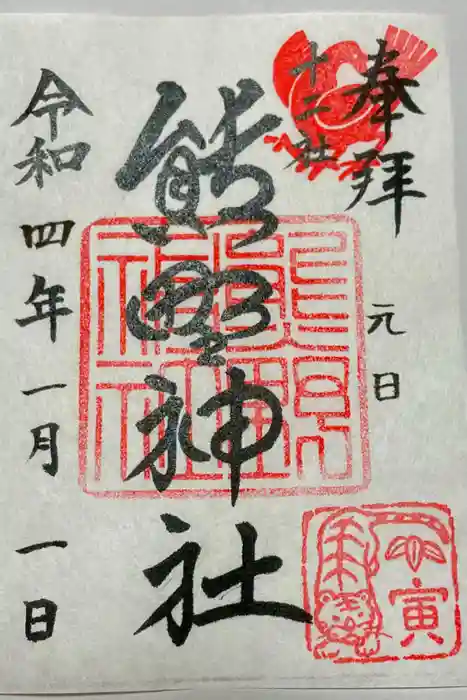 奉拝
十二社
元日
熊野神社
令和四年一月一日
寅